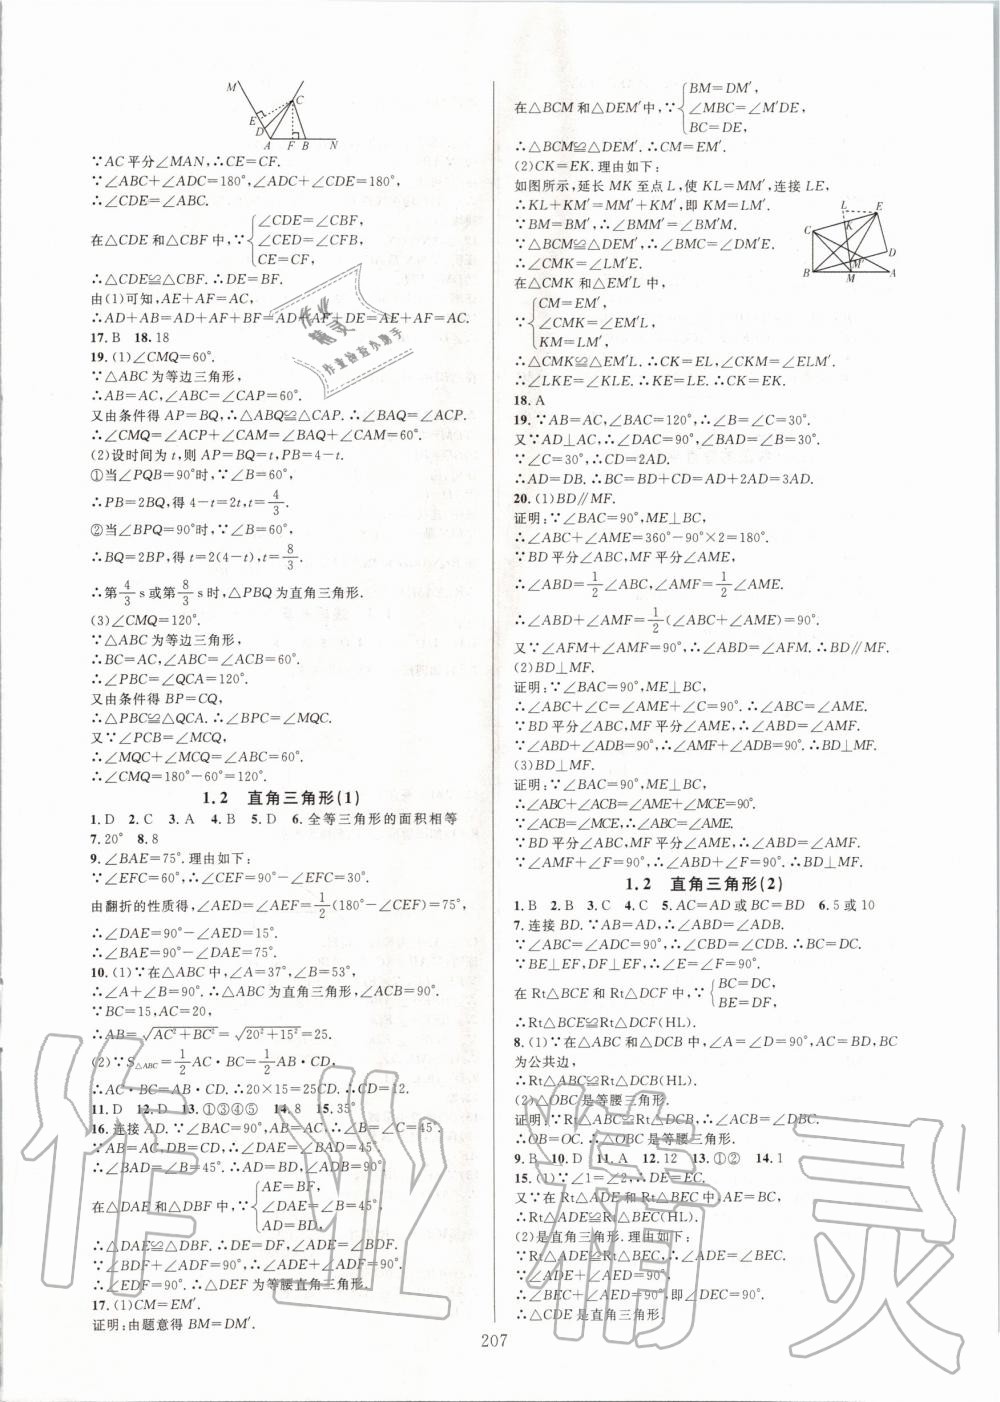 M
C
E
D
A F B N
∵AC平分∠MAN,∴CE=CF.
∵∠ABC+∠ADC=180°,∠ADC+∠CDE=180°,
∴∠CDE=∠ABC.
在△CDE和△CBF中,∵{∠CDE=∠CBF,
∠CED=∠CFB
CE=CF,
∴△CDE≌△CBF.∴DE=BF.
由(1)可知,AE+AF=AC,
∴AD+AB=AD+AF+BF=AD+AF+DE=AE+AF=AC.
17.B 18.18
19.(1)∠CMQ=60°.
∵△ABC为等边三角形,
∴AB=AC,∠ABC=∠CAP=60°.
又由条件得AP=BQ,∴△ABQ≌△CAP.∴∠BAQ=∠ACP.
∴∠CMQ=∠ACP+∠CAM=∠BAQ+∠CAM=∠BAC=60°.
(2)设时间为t,则AP=BQ=t,PB=4-t.
①当∠PQB=90°时,∵∠B=60°,
∴PB=2BQ,得4-t=2t,t=4/3.
②当∠BPQ=90°时,∵∠B=60°,
∴BQ=2BP,得t=2(4-t),t=8/3.
∴第4/3 s或第8/3 s时,△PBQ为直角三角形.
(3)∠CMQ=120°.
∵△ABC为等边三角形,
∴BC=AC,∠ABC=∠ACB=60°.
∴∠PBC=∠QCA=120°.
又由条件得BP=CQ,
∴△PBC≌△QCA.∴∠BPC=∠MQC.
又∵∠PCB=∠MCQ,
∴∠MQC+∠MCQ=∠ABC=60°.
∴∠CMQ=180°-60°=120°.
1.2 直角三角形(1)
1.D 2.C 3.A 4.B 5.D 6.全等三角形的面积相等
7.20° 8.8
9.∠BAE=75°.理由如下:
∵∠EFC=60°,∴∠CEF=90°-∠EFC=30°.
由翻折的性质得,∠AED=∠AEF=1/2(180°-∠CEF)=75°,
∴∠DAE=90°-15°... 
∴∠BAE=90°-∠DAE=75°.
10.(1)∵在△ABC中,∠A=37°,∠B=53°,
∴∠A+∠B=90°.∴△ABC为直角三角形,∠ACB=90°.
∵BC=15,AC=20,
∴AB=√AC²+BC²=√20²+15²=25.
(2)∵S△ABC=1/2AC·BC=1/2AB·CD,
∴AC·BC=AB·CD.∴20×15=25CD.∴CD=12.
11.D 12.D 13.①③④⑤ 14.8 15.35°
16.连接AD.∵∠BAC=90°,AB=AC,∴∠B=∠C=45°.
∵AB=AC,DB=CD,∴∠DAE=∠BAD=45°.
∴∠BAD=∠B=45°.∴AD=BD,∠ADB=90°.
在△DAE和△DBF中,∵{AE=BF,
∠DAE=∠B=45°,
AD=BD,
∴△DAE≌△DBF.∴DE=DF,∠ADE=∠BDF.
∵∠BDF+∠ADF=∠ADB=90°,∴∠ADE+∠ADF=90°.
∴∠EDF=90°.∴△DEF为等腰直角三角形.
17.(1)CM=EM′.
证明:由题意得BM=DM′.
在△BCM和△DEM′中,∵{BM=DM′,
∠MBC=∠M′DE,
BC=DE,
∴△BCM≌△DEM′.∴CM=EM′.
(2)CK=EK.理由如下:
如图所示,延长MK至点L,使KL=MM′,连接LE,
∴KL+KM′=MM′+KM′,即KM=LM′.
∵BM=BM′,∴∠BMM′=∠BM′M.
∵△BCM≌△DEM′,∴∠BMC=∠DM′E.
∴∠CMK=∠LM′E.
在△CMK和△EM′L中,
∵{CM=EM′,
∠CMK=∠EM′L,
KM=LM′,
∴△CMK≌△EM′L.∴CK=EL,∠CKM=∠ELM′.
∴∠LKE=∠KLE.∴KE=LE.∴CK=EK.
L E
K
C
D
M′
B M A
18.A
19.∵AB=AC,∠BAC=120°,∴∠B=∠C=30°.
又∵AD⊥AC,∴∠DAC=90°,∠BAD=30°.
∵∠C=30°,∴CD=2AD.
∴AD=DB.∴BC=BD+CD=AD+2AD=3AD.
20.(1)BD∥MF.
证明:∵∠BAC=90°,ME⊥BC,
∴∠ABC+∠AME=360°-90°×2=180°.
∵BD平分∠ABC,MF平分∠AME,
∴∠ABD=1/2∠ABC,∠AMF=1/2∠AME.
∴∠ABD+∠AMF=1/2(∠ABC+∠AME)=90°.
又∵∠AFM+∠AMF=90°,∴∠ABD=∠AFM.∴BD∥MF.
(2)BD⊥MF.
证明:∵∠BAC=90°,ME⊥BC,
∴∠ABC+∠C=∠AME+∠C=90°.∴∠ABC=∠AME.
∵BD平分∠ABC,MF平分∠AME,∴∠ABD=∠AMF.
∵∠ABD+∠ADB=90°,∴∠AMF+∠ADB=90°.∴BD⊥MF.
(3)BD⊥MF.
证明:∵∠BAC=90°,ME⊥BC,
∴∠ABC+∠ACB=∠AME+∠MCE=90°.
∵∠ACB=∠MCE,∴∠ABC=∠AME.
∵BD平分∠ABC,MF平分∠AME,∴∠ABD=∠AMF.
∵∠AMF+∠F=90°,∴∠ABD+∠F=90°.∴BD⊥MF.
1.2 直角三角形(2)
1.B 2.B 3.C 4.C 5.AC=AD或BC=BD 6.5或10
7.连接BD.∵AB=AD,∴∠ABD=∠ADB.
∵∠ABC=∠ADC,∴∠CBD=∠CDB.∴BC=DC.
∵BE⊥EF,DF⊥EF,∴∠E=∠F=90°.
在Rt△BCE和Rt△DCF中,∵{BC=DC,
BE=DF,
∴Rt△BCE≌Rt△DCF(HL).
8.(1)∵在△ABC和△DCB中,∠A=∠D=90°,AC=BD,BC
为公共边,
∴Rt△ABC≌Rt△DCB(HL).
(2)△OBC是等腰三角形.
证明:∵Rt△ABC≌Rt△DCB,∴∠ACB=∠DBC.
∴OB=OC.∴△OBC是等腰三角形.
9.B 10.D 11.A 12.12 13.①② 14.1
15.(1)∵∠1=∠2,∴DE=EC.
又∵在Rt△ADE和Rt△BEC中,AE=BC,
∴Rt△ADE≌Rt△BEC(HL).
(2)是直角三角形.理由如下:
∵Rt△ADE≌Rt△BEC,∴∠ADE=∠BEC.
∵∠ADE+∠AED=90°,
∴∠BEC+∠AED=90°,即∠DEC=90°.
∴△CDE是直角三角形.
207
作业精灵
作业检查小助手
作业精灵